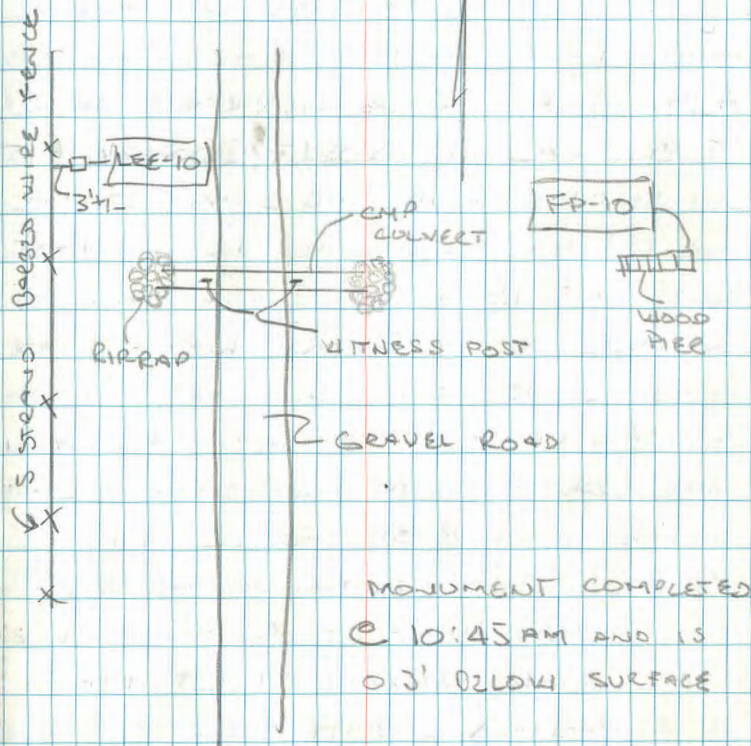 5 STRAND BARBED WIRE FENCE
LEE-10
3'+/-
CMP
CULVERT
FP-10
WOOD
PIER
RIPRAP
WITNESS POST
GRAVEL ROAD
MONUMENT COMPLETED
@ 10:45 AM AND IS
0.3' BELOW SURFACE